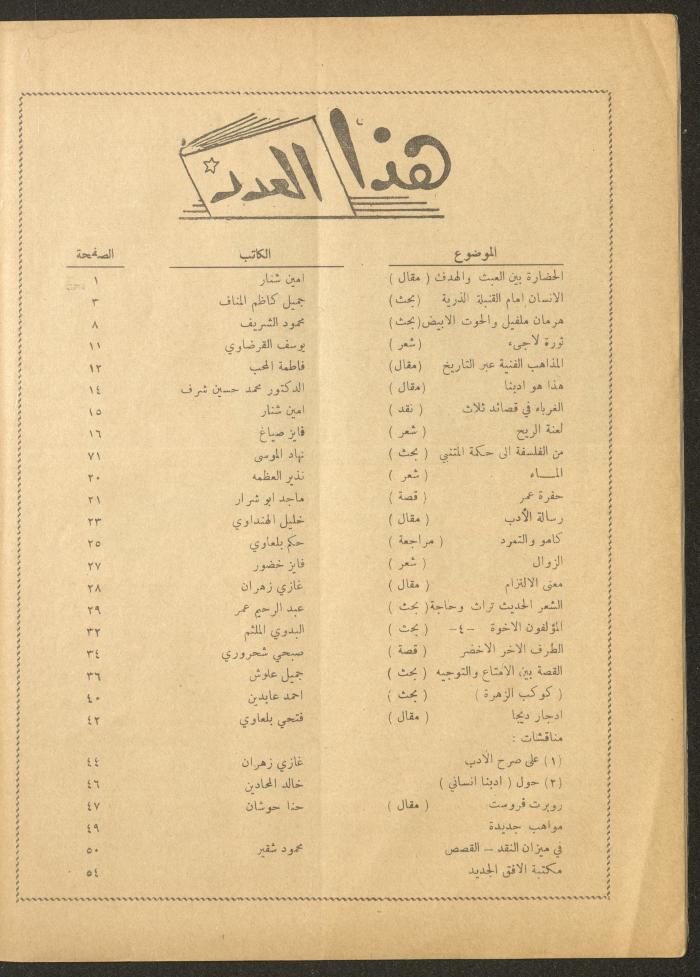 هذا العدد
الموضوع الكاتب الصفحة
الحضارة بين العبث والهدف ( مقال ) امين شنار ١
الانسان امام القنبلة الذرية (بحث) جميل كاظم المناف ٣
هرمان ملفيل والحوت الابيض(بحث) محمود الشريف ٨
ثورة لاجىء ( شعر ) يوسف القرضاوي ١١
المذاهب الفنية عبر التاريخ (مقال) فاطمة المحب ١٢
هذا هو ادبنا (مقال ) الدكتور محمد حسين شرف ١٤
الغرباء في قصائد ثلاث ( نقد ) امين شنار ١٥
لعنة الريح ( شعر ) فايز صياغ ١٦
من الفلسفة الى حكمة المتنبي ( بحث ) نهاد الموسى ٧١
المـــاء ( شعر ) نذير العظمه ٢٠
حفرة عمر ( قصة ) ماجد ابو شرار ٢١
رسالة الأدب ( مقال ) خليل الهنداوي ٢٣
كامو والتمرد ( مراجعة ) حكم بلعاوي ٢٥
الزوال ( شعر ) فايز خضور ٢٧
معنى الالتزام ( مقال ) غازي زهران ٢٨
الشعر الحديث تراث وحاجة( بحث ) عبد الرحيم عمر ٢٩
المؤلفون الاخوة -٤- ( بحث ) البدوي الملثم ٣٢
الطرف الاخر الاخضر ( قصة ) صبحي شحروري ٣٤
القصة بين الامتاع والتوجيه ( بحث ) جميل علوش ٣٦
( كوكب الزهرة ) ( بحث ) احمد عابدين ٤٠
ادجار ديجا ( مقال ) فتحي بلعاوي ٤٢
مناقشات :
(١) على صرح الأدب غازي زهران ٤٤
(٢) حول ( ادبنا انساني ) خالد المحادين ٤٦
روبرت فروست ( مقال ) حنا حوشان ٤٧
مواهب جديدة ٤٩
في ميزان النقد - القصص محمود شقير ٥٠
مكتبة الافق الجديد ٥٤